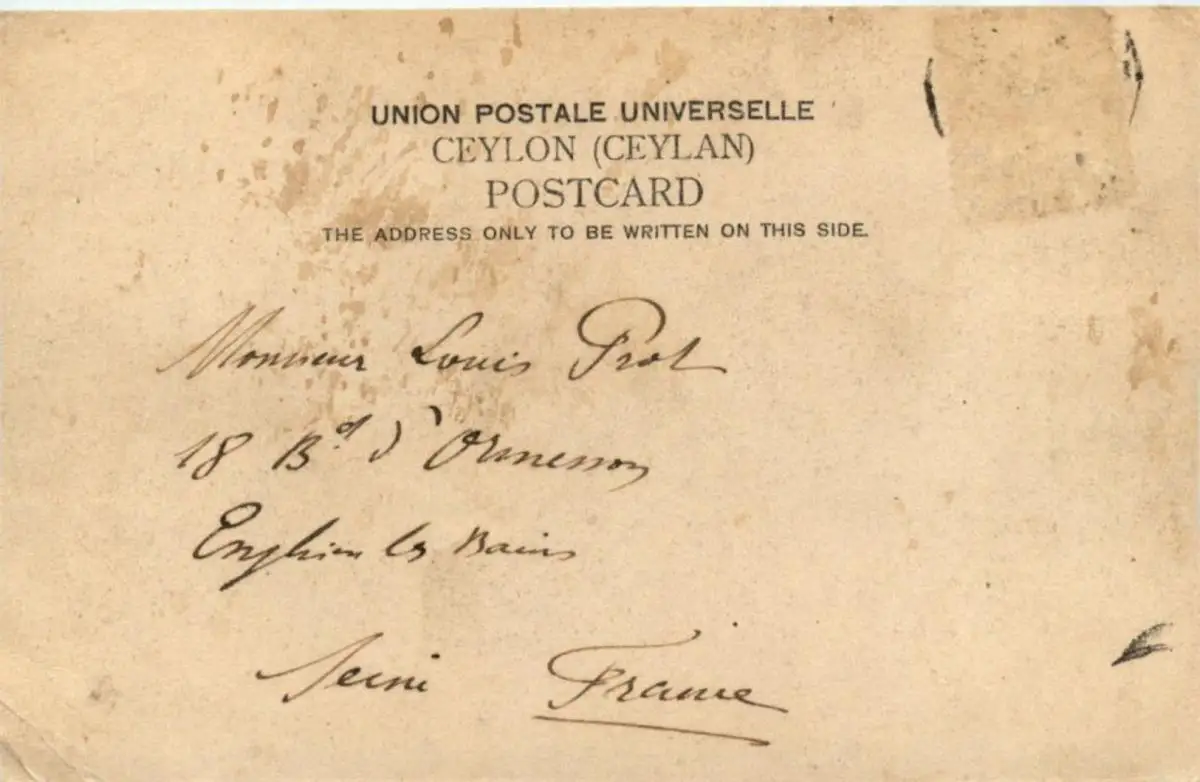 UNION POSTALE UNIVERSELLE
CEYLON (CEYLAN)
POSTCARD
THE ADDRESS ONLY TO BE WRITTEN ON THIS SIDE.
Monsieur Louis Prot
18 Bd d'Ormesson
Enghien les Bains
Seine France